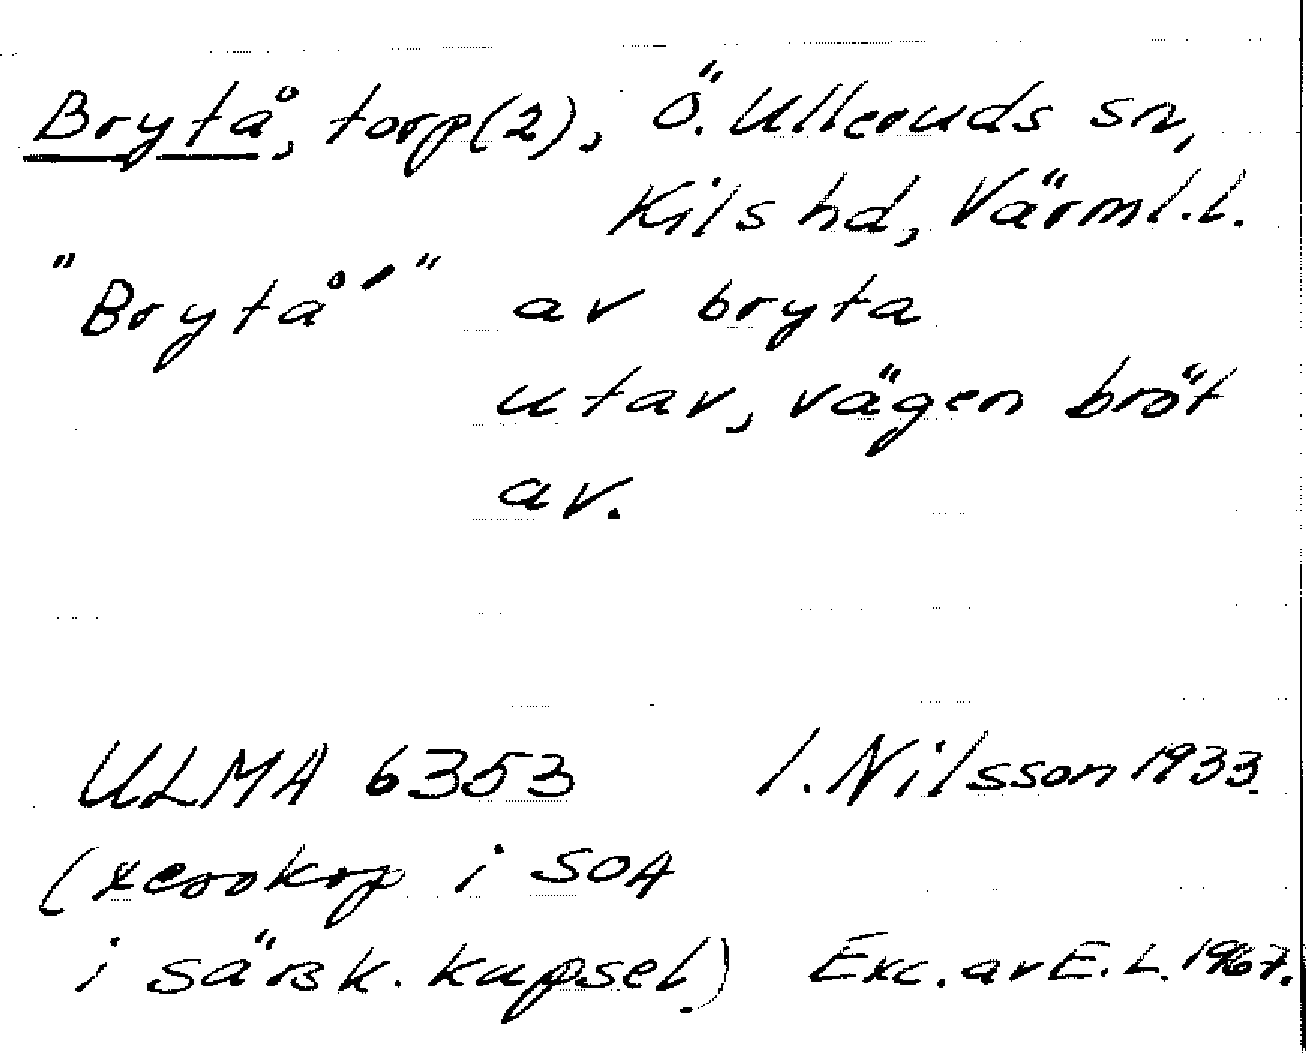 Brytå, torp(2), Ö. Ulleruds sn,
Kils hd, Värml.l.
"Brytå´" av bryta
utav, vägen bröt
av.
ULMA 6353 I. Nilsson 1933.
(xerokop i SOA
i särsk. kapsel.) Exc. av E. L. 1967.